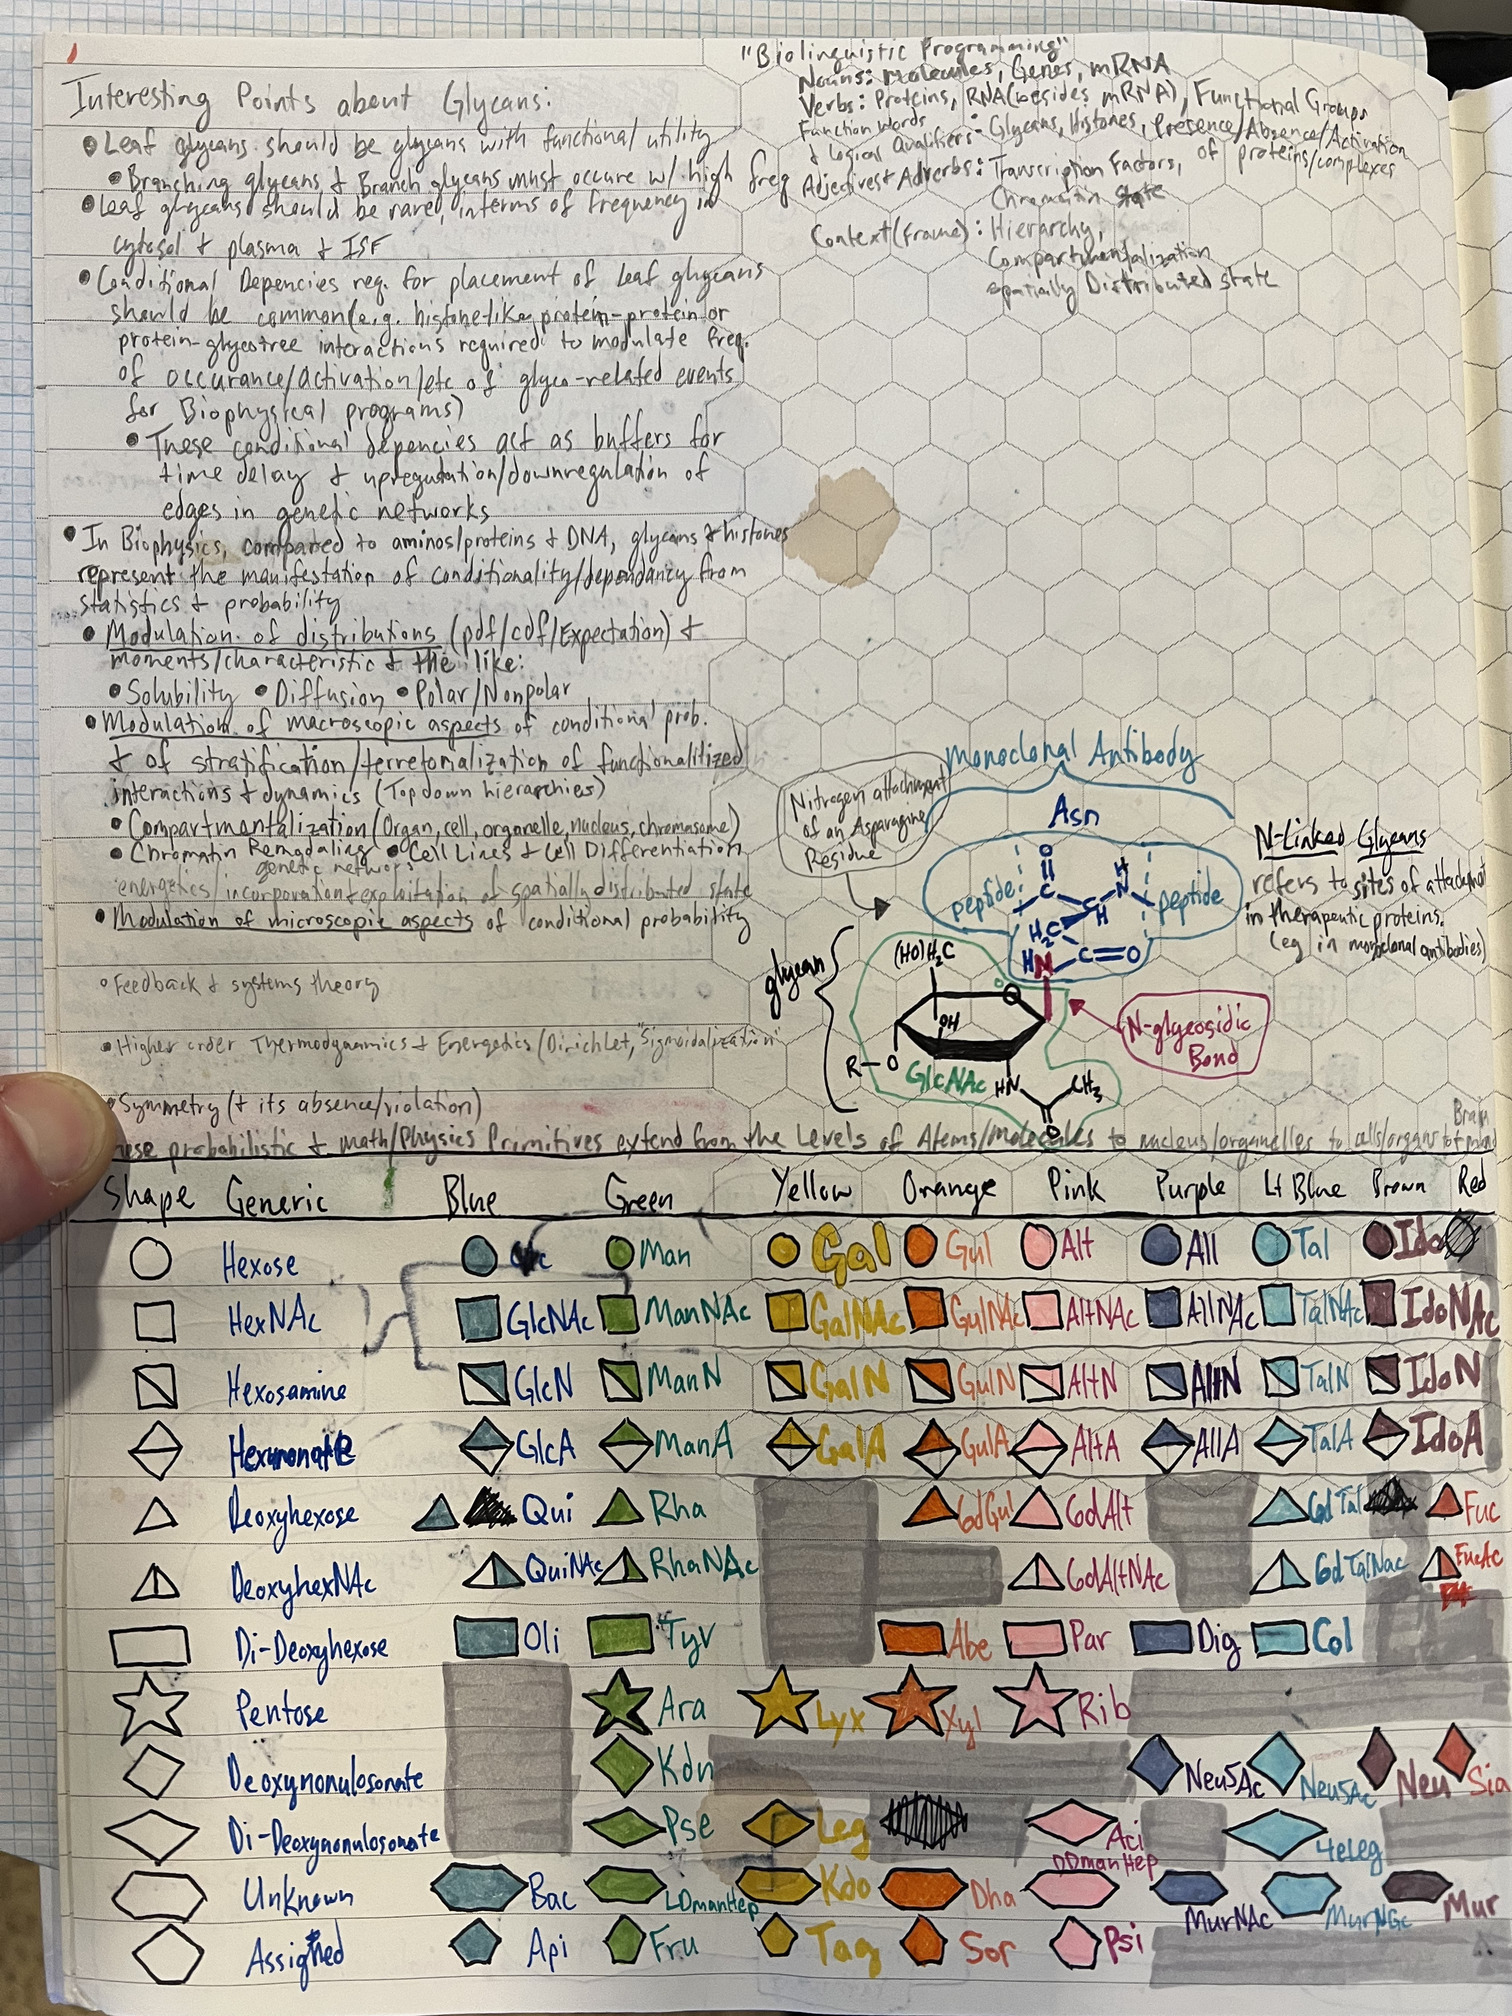 Interesting Points about Glycans:
• Leaf glycans should be glycans with functional utility
• Branching glycans & Branch glycans must occure w/ high freq
• Leaf glycans should be rare, interms of frequency in
cytosol & plasma & ISF
• Conditional Depencies req. for placement of leaf glycans
should be common (e.g. histone-like, protein-protein or
protein-glycotree interactions required to modulate freq.
of occurance/activation/etc of glyco-related events
for Biophysical programs)
• These conditional depencies act as buffers for
time delay & upregulation/downregulation of
edges in genetic networks
• In Biophysics, compared to aminos/proteins & DNA, glycans & histones
represent the manifestation of conditionality/dependancy from
statistics & probability
• Modulation of distributions (pdf/cdf/Expectation) &
moments/characteristic & the like:
• Solubility • Diffusion • Polar/Nonpolar
• Modulation of macroscopic aspects of conditional prob.
& of stratification/terretorialization of functionalitized
interactions & dynamics (Top down hierarchies)
• Compartmentalization (Organ, cell, organelle, nucleus, chromasome)
• Chromatin Remodaling • Cell Lines & Cell Differentiation
genetic network
energetics/incorporation & exploitation of spatially distributed state
• Modulation of microscopic aspects of conditional probability
• Feedback & systems theory
• Higher order Thermodynamics & Energetics (Dirichlet, "Sigmoidalization"
• Symmetry (& its absence/violation)
hese probabilistic & math/Physics Primitives extend from the Levels of Atoms/molecules to nucleus/organelles to cells/organs to
Brain
"Biolinguistic Programming"
Nouns: Molecules, Genes, mRNA
Verbs: Proteins, RNA (besides mRNA), Functional Groups
Function Words
& Logical Qualifiers: Glycans, Histones, Presence/Absence/Activation
of proteins/complexes
Adjectives & Adverbs: Transcription Factors,
Chromatin State
Context (Frame): Hierarchy,
Compartmentalization
spatially Distributed state
Monoclonal Antibody
Nitrogen attachment
of an Asparagine
Residue
Asn
peptide
peptide
O
C
H
N
C
H
H2C
C=O
HN
N-Linked Glycans
refers to sites of attachment
in therapeutic proteins.
(eg in monoclonal antibodies)
glycan
(HO)H2C
O
OH
R-O
GlcNAc
HN
CH3
O
N-glycosidic
Bond
Shape Generic Blue Green Yellow Orange Pink Purple Lt Blue Brown Red
Hexose Glc Man Gal Gul Alt All Tal Ido
HexNAc GlcNAc ManNAc GalNAc GulNAc AltNAc AllNAc TalNAc IdoNAc
Hexosamine GlcN ManN GalN GulN AltN AltN TalN IdoN
Hexuronate GlcA ManA GalA GulA AltA AllA TalA IdoA
Deoxyhexose Qui Rha 6dGul 6dAlt 6dTal Fuc
DeoxyhexNAc QuiNAc RhaNAc 6dAltNAc 6dTalNac FucAc
Di-Deoxyhexose Oli Tyv Abe Par Dig Col
Pentose Ara Lyx Xyl Rib
Deoxynonulosonate Kdn Neu5Ac Neu5Ac Neu Sia
Di-Deoxynonulosonate Pse Leg Aci 4eLeg
Unknown Bac LDmanHep Kdo Dha DDmanHep MurNAc MurNGc Mur
Assigned Api Fru Tag Sor Psi